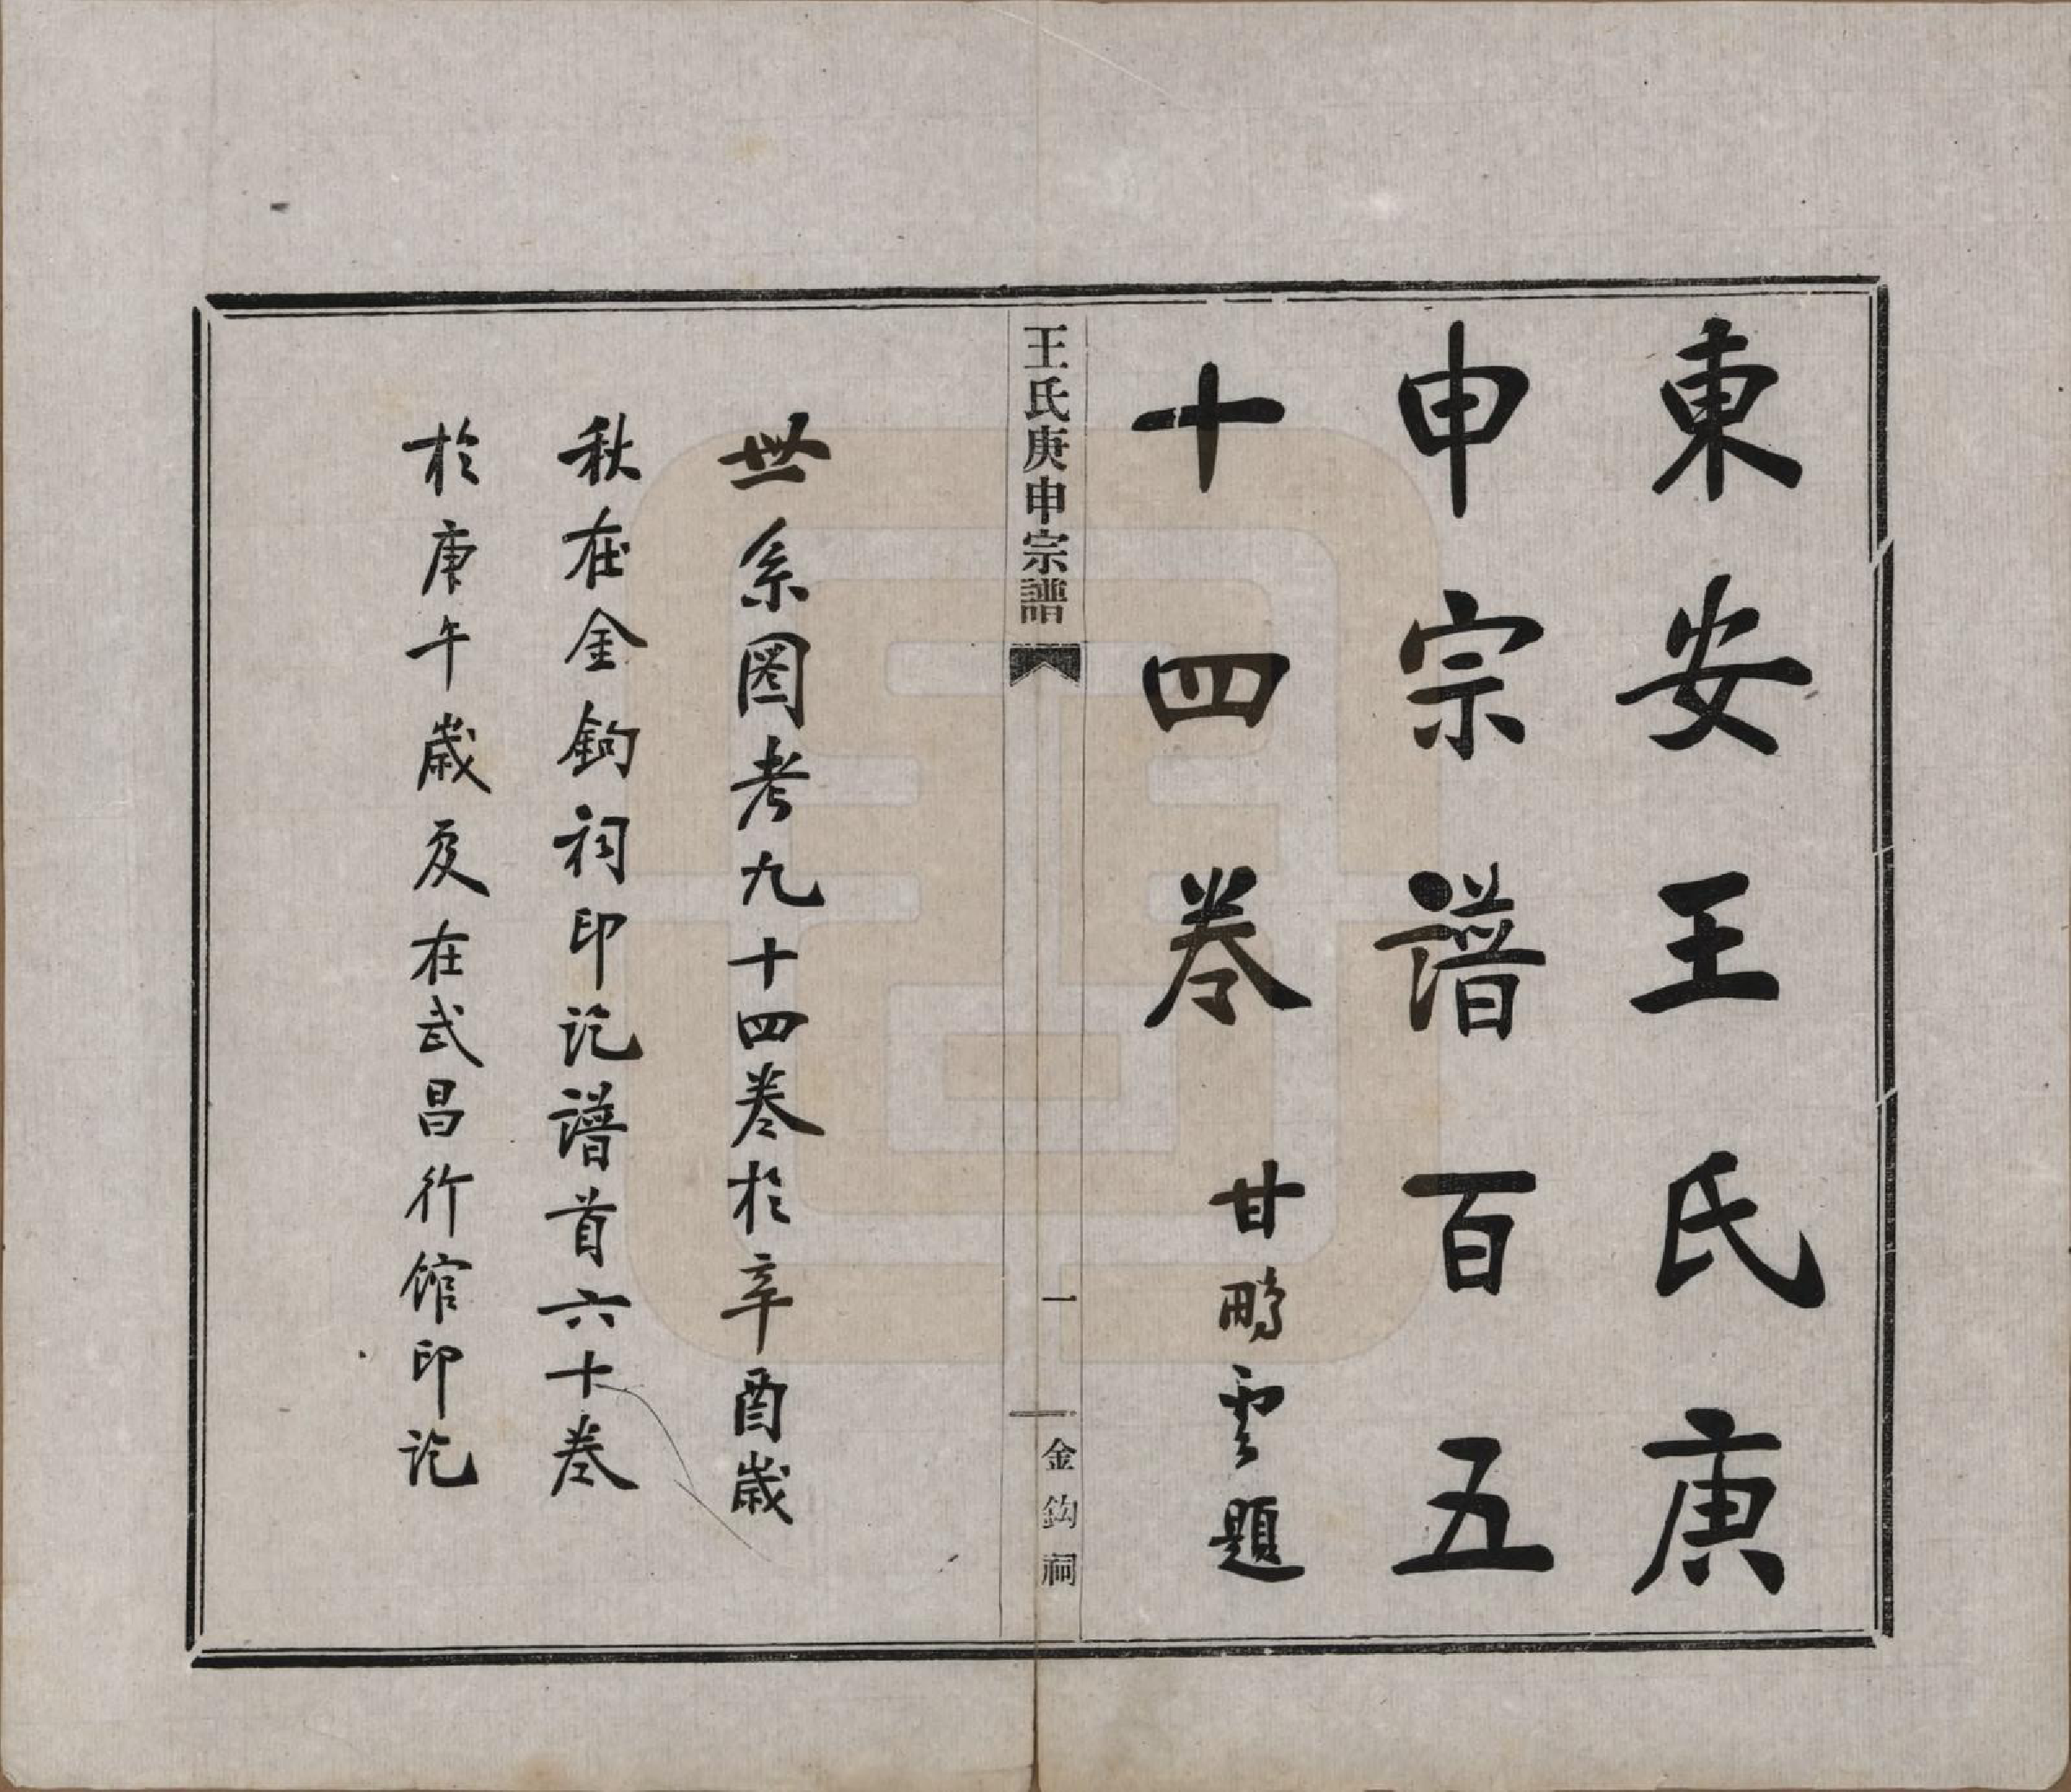 東安王氏庚
申宗譜百五
十四卷
甘鵬雲題
王氏庚申宗譜
一
金鈎祠
世系圖考九十四卷於辛酉歲
秋在金鈎祠印訖譜首六十卷
於庚午歲夏在武昌行館印訖